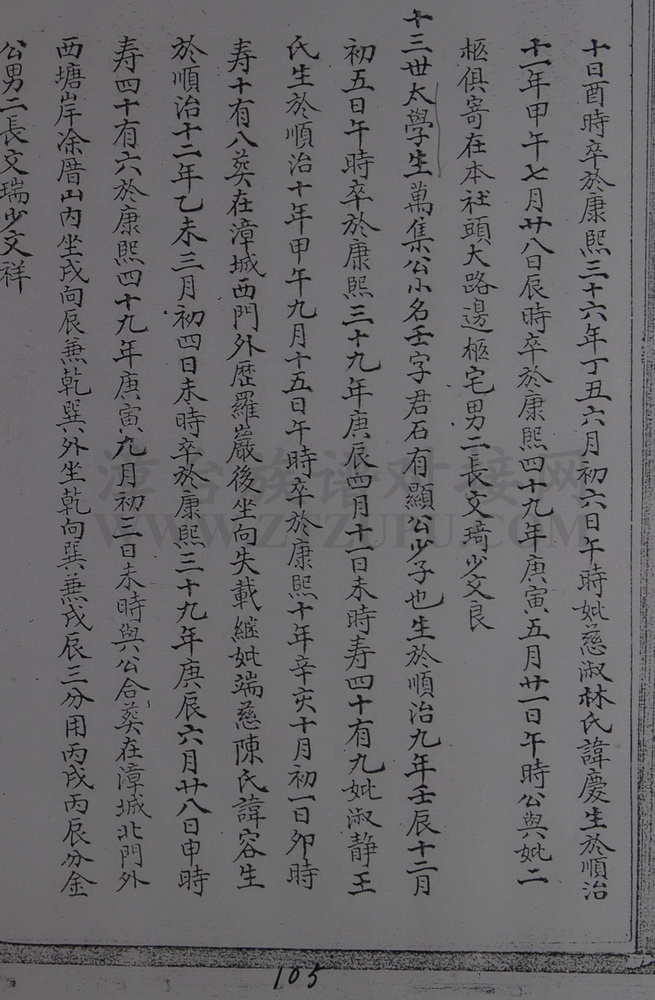 十日酉時卒於康熙三十六年丁丑六月初六日午時妣慈淑林氏諱慶生於順治
十一年甲午七月廿八日辰時卒於康熙四十九年庚寅五月廿一日午時公與妣二
柩俱寄在本社頭大路邊柩宅男二長文琦少文良
十三世太學生萬集公小名壬字君石有顯公少子也生於順治九年壬辰十二月
初五日午時卒於康熙三十九年庚辰四月十一日未時寿四十有九妣淑静王
氏生於順治十年甲午九月十五日午時卒於康熙十年辛亥十月初一日卯時
寿十有八葬在漳城西門外歷羅巖後坐向失載継妣端慈陳氏諱容生
於順治十二年乙未三月初四日未時卒於康熙三十九年庚辰六月廿八日申時
寿四十有六於康熙四十九年庚寅九月初三日未時與公合葬在漳城北門外
西塘岸凃厝山内坐戌向辰兼乾巽外坐乾向巽兼戌辰三分用丙戌丙辰分金
公男二長文瑞少文祥
漳台族谱对接网
WWW.ZTZUPU.COM
105